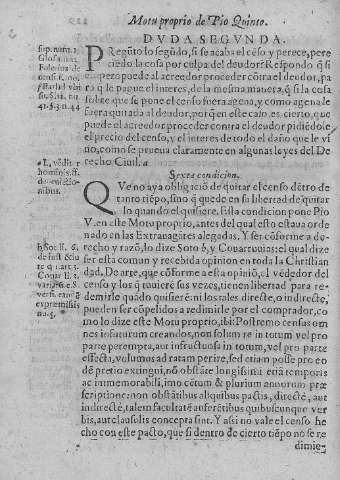 Motu proprio de Pio Quinto.
DVDA SEGVNDA.
PRegũto lo segũdo, si se acaba el cẽso y perece, pere
ciẽdo la cosa por culpa del deudor? Respondo q̃ si
pero puede al acreedor proceder cõtra el deudor, pa
ra q̃ le pague el interes, de la mesma manera, q̃ si la cosa
sobre que se pone el censo fuera agena, y como agena le
fuera quitada al deudor, porq̃ en este caso es cierto, que
puede el acreedor proceder contra el deudor pidiẽdole
el precio del censo, y el interes de todo el daño que le vi
no, como se prueua claramente en algunas leyes del De
recho Ciuil. a
Sexta condicion.
QVe no aya obligaciõ de quitar el censo dẽtro de
tanto tiẽpo, sino q̃ quede en su libertad de quitar
lo quando el quisiere. Esta condicion pone Pio
V. en este Motu proprio, antes del qual esto estaua orde
nado en las Extrauagãtes alegadas. Y ser cõforme a de-
recho y razõ, lo dize Soto b, y Couarruuias: el qual dize
ser esta comun y recebida opinion en toda la Christian
dad. De arte, que cõforme a esta opiniõ, el vẽdedor del
censo y los q̃ tuuierẽ sus vezes, tienen libertad para re-
demirle quãdo quisierẽ: ni los tales directe, o indirecte,
pueden ser cõpelidos a redimirle por el comprador, co
mo lo dize este Motu proprio, ibi: Postremo census om
nes in futurum creandos, non solum re in totum vel pro
parte perempta, aut infructuosa in totum, vel pro parte
effecta, volumus ad ratam perire, sed etiam posse pro eo
dẽ pretio extingui, nõ obstãte longissimi etiã temporis
ac immemorabili, imo cẽtum & plurium annorum præ
scriptione: non obstãtibus aliquibus pactis, directè, aut
indirectè, talem facultatẽ auferẽtibus quibuscunque ver
bis, aut clausulis concepta sint. Y assi no vale el censo he
cho con este pacto, que si dentro de cierto tiẽpo no se re
dimie-
sup. num. 1.
41. §. 3. n. 44
a L. vẽdit.
hominis. ff.
nibus.
b Sot. li. 6.
de iust. & iu
re q. 1. art. 3.
Couar. li. 3.
nu. 5.